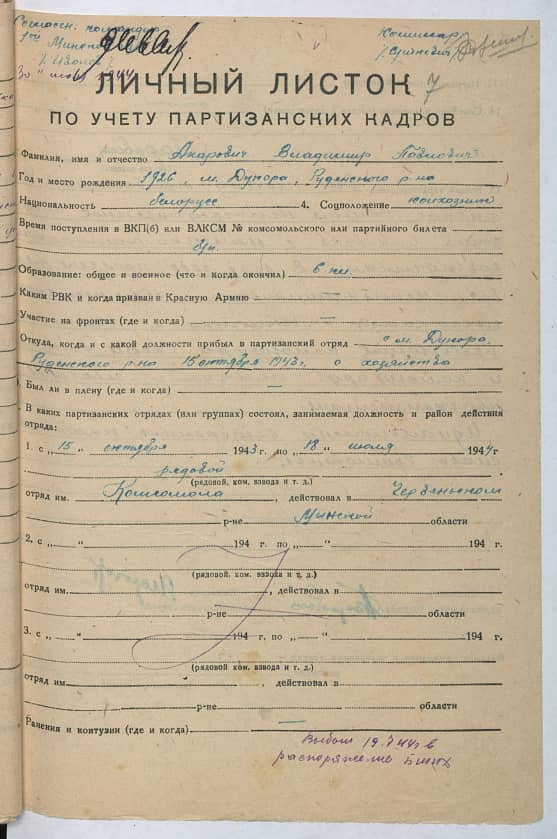 Комиссар
30 1944
7
ЛИЧНЫЙ ЛИСТОК
ПО УЧЕТУ ПАРТИЗАНСКИХ КАДРОВ
Фамилия, имя и отчество Акарович Владимир Павлович
Год и место рождения 1926, м. Дукора, Руденского р-на
Национальность белорусс 4. Соцположение колхозник
Время поступления в ВКП(б) или ВЛКСМ № комсомольского или партийного билета
б/п.
Образование: общее и военное (что и когда окончил) 6 кл.
Каким РВК и когда призван в Красную Армию —
Участие на фронтах (где и когда) —
Откуда, когда и с какой должности прибыл в партизанский отряд с м. Дукора
Руденского р-на 15 октября 1943 г. с хозяйства
Был ли в плену (где и когда) —
В каких партизанских отрядах (или группах) состоял, занимаемая должность и район действия
отряда:
1. с „15" октября 1943 г. по „18" июля 1944 г
рядовой
(рядовой, ком. взвода и т. д.)
отряд им. Комсомола, действовал в Червеньском
р-не Минской области
2. с „ " 194 г. по „ " 194 г.
(рядовой, ком. взвода и т. д.)
отряд им. , действовал в
р-не области
3. с „ " 194 г. по „ " 194 г.
(рядовой, ком. взвода и т. д.)
отряд им. , действовал в
р-не области
Ранения и контузии (где и когда) —
Выбыл 19.7.44 г в
распоряжение БШПД